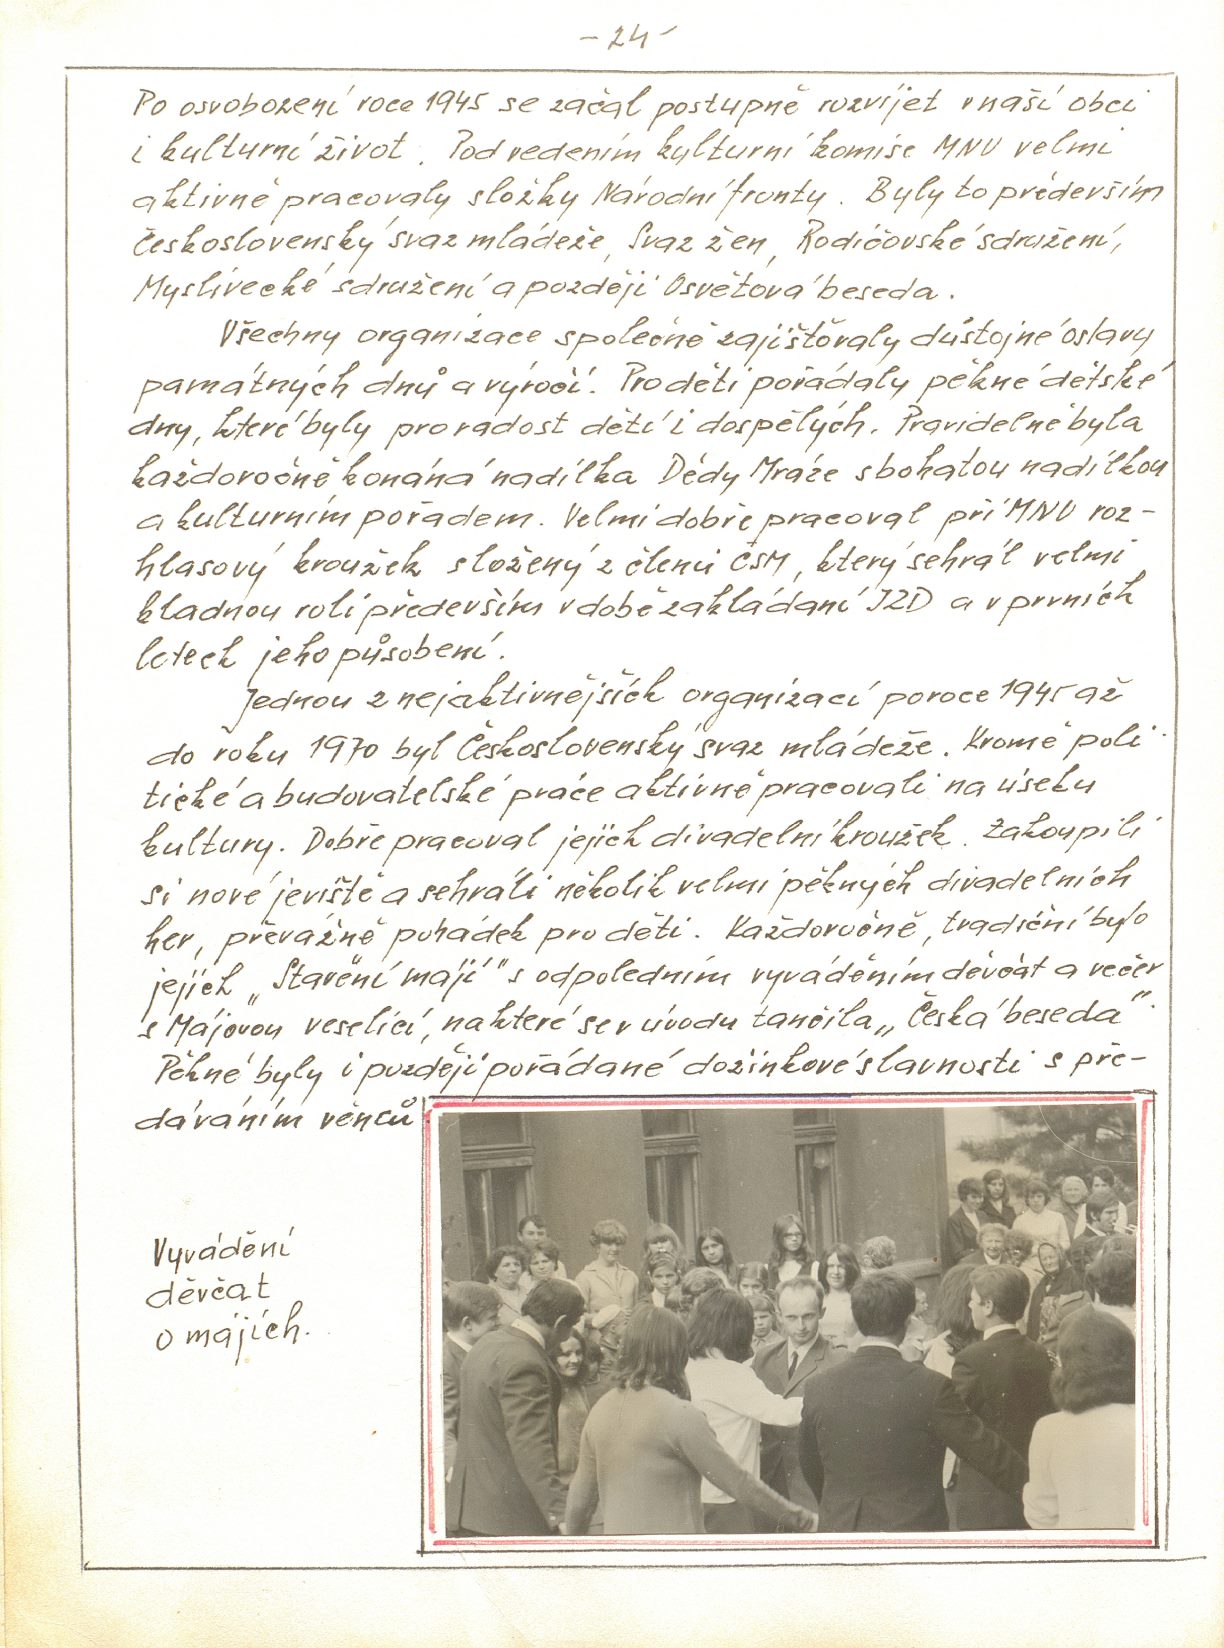 - 24 -
Po osvobození roce 1945 se začal postupně rozvíjet v naší obci
i kulturní život. Pod vedením kulturní komise MNV velmi
aktivně pracovaly složky Národní fronty. Byly to především
Československý svaz mládeže, Svaz žen, Rodičovské sdružení,
Myslivecké sdružení a později Osvětová beseda.
Všechny organizace společně zajišťovaly důstojné oslavy
památných dnů a výročí. Pro děti pořádaly pěkné dětské
dny, které byly pro radost dětí i dospělých. Pravidelně byla
každoročně konána nadílka Dědy Mráze s bohatou nadílkou
a kulturním pořadem. Velmi dobře pracoval při MNV roz-
hlasový kroužek složený z členů ČSM, který sehrál velmi
kladnou roli především v době zakládání JZD a v prvních
letech jeho působení.
Jednou z nejaktivnějších organizací po roce 1945 až
do roku 1970 byl Československý svaz mládeže. Kromě poli-
tické a budovatelské práce aktivně pracovali na úseku
kultury. Dobře pracoval jejich divadelní kroužek. Zakoupili
si nové jeviště a sehráli několik velmi pěkných divadelních
her, převážně pohádek pro děti. Každoročně, tradiční bylo
jejich „Stavění májí" s odpoledním vyváděním děvčat a večer
s Májovou veselicí, na které se v úvodu tančila „Česká beseda".
Pěkné byly i později pořádané dožínkové slavnosti s pře-
dáváním věnců
Vyvádění
děvčat
o májích.